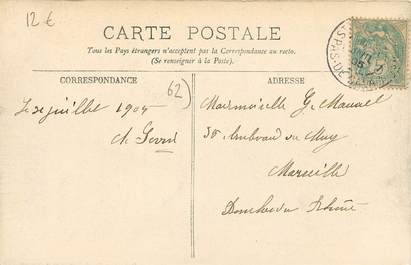 12 €
CARTE POSTALE
Tous les Pays étrangers n'acceptent pas la Correspondance au recto.
(Se renseigner à la Poste).
CORRESPONDANCE
ADRESSE
62
Le 21 juillet 1904
Mademoiselle G. Manuel
35 Boulevard du Muy
Marseille
Bouches du Rhône